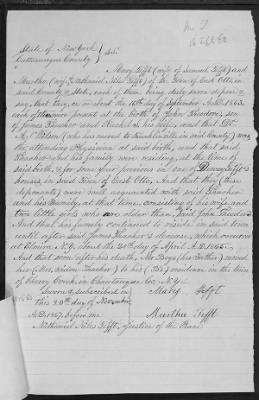 State of New York
Cattaraugus County } ss.
Mary Tefft (wife of Samuel Tefft) and
Martha (wife Nathaniel Niles Tefft) of the Town of East Otto, in
said County & State, each of them being duly sworn depose &
say, that they, on or about the 10th day of September A.D. 1863
each of them were present at the birth of John Theodore, son
of James Thrasher and Rachel S. his wife, and that Doct.
Wilson (who has moved to in said County) was
the attending Physician at said birth, and that said
Thrasher and his family were residing, at the time of
said birth, & for some previous in one of Tefft's
houses, in said Town of East Otto, and that they (these
deponents) were well acquainted with said Thrasher
and his family, at that time, consisting of his wife and
two little girls who are older than said John Theodore
And that his family continued to reside in said town
until after said James Thrasher's decease, which occurred
at Elmira N.Y. about the 20th day of April A.D. 1865.
And that soon after his death, Mr. Boys (his brother) moved
her (Mrs. widow Thrasher) to his residence in the town
of Cherry Creek, in Chautauqua Co. N.Y.
Sworn & subscribed in
this 30th day of November
A.D. 1867, before me
Mary Tefft
Martha Tefft
Nathaniel Niles Tefft, Justice of the Peace